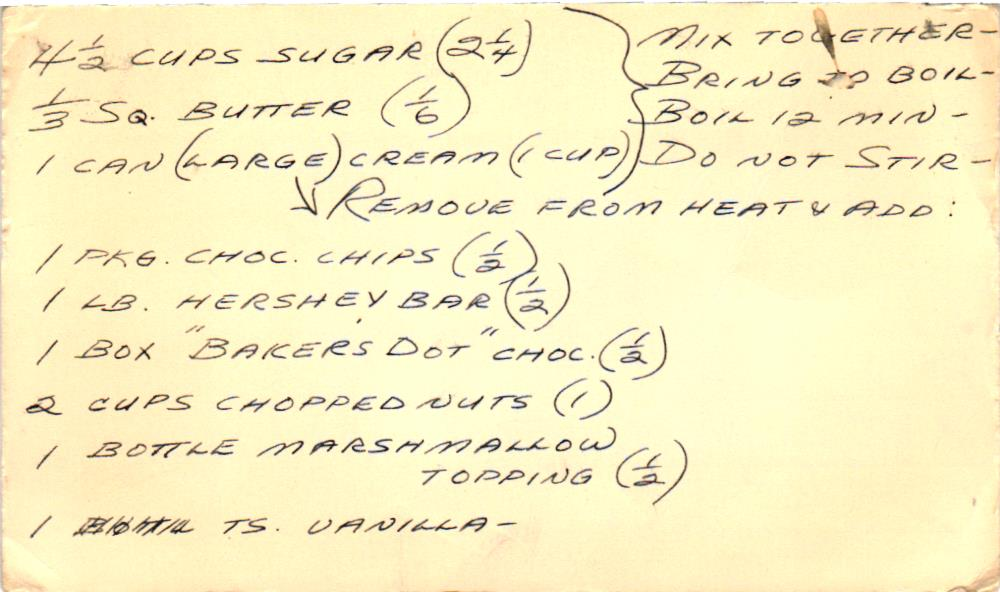 4 1/2 CUPS SUGAR (2 1/4)
1/3 SQ. BUTTER (1/6)
1 CAN (LARGE) CREAM (1 CUP)
MIX TOGETHER-
BRING TO BOIL-
BOIL 12 MIN-
DO NOT STIR-
REMOVE FROM HEAT & ADD:
1 PKG. CHOC. CHIPS (1/2)
1 LB. HERSHEY BAR (1/2)
1 BOX "BAKERS DOT" CHOC. (1/2)
2 CUPS CHOPPED NUTS (1)
1 BOTTLE MARSHMALLOW
TOPPING (1/2)
1 TS. VANILLA-